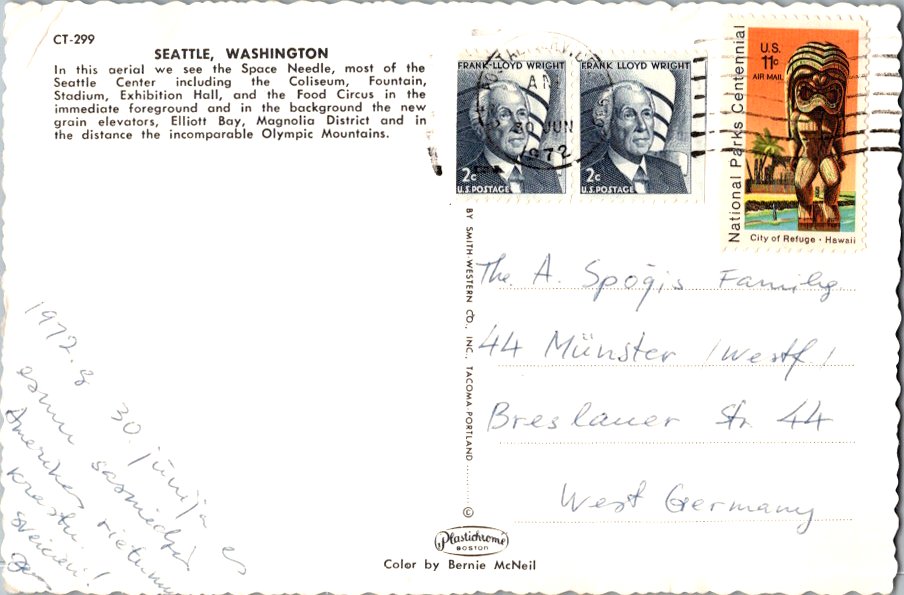 CT-299
SEATTLE, WASHINGTON
In this aerial we see the Space Needle, most of the
Seattle Center including the Coliseum, Fountain,
Stadium, Exhibition Hall, and the Food Circus in the
immediate foreground and in the background the new
grain elevators, Elliott Bay, Magnolia District and in
the distance the incomparable Olympic Mountains.
FRANK LLOYD WRIGHT
2c
U.S. POSTAGE
FRANK LLOYD WRIGHT
2c
U.S. POSTAGE
AM
30 JUN
1972
National Parks Centennial
U.S.
11c
AIR MAIL
City of Refuge · Hawaii
BY SMITH-WESTERN CO., INC., TACOMA-PORTLAND
The A. Spōģis Family
44 Münster /Westf./
Breslauer Str. 44
West Germany
1972. g 30. jūnijā es
esmu sasniedzis
Amerikas rietumu
krastu.
Sveicieni!
©
Plastichrome
BOSTON
Color by Bernie McNeil